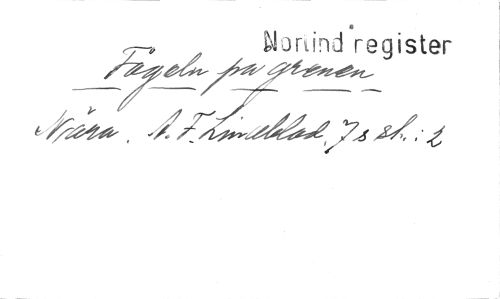 Norlind register
Fågeln på grenen
Nära. A. F. Lindblad, 7 s sh.: 2